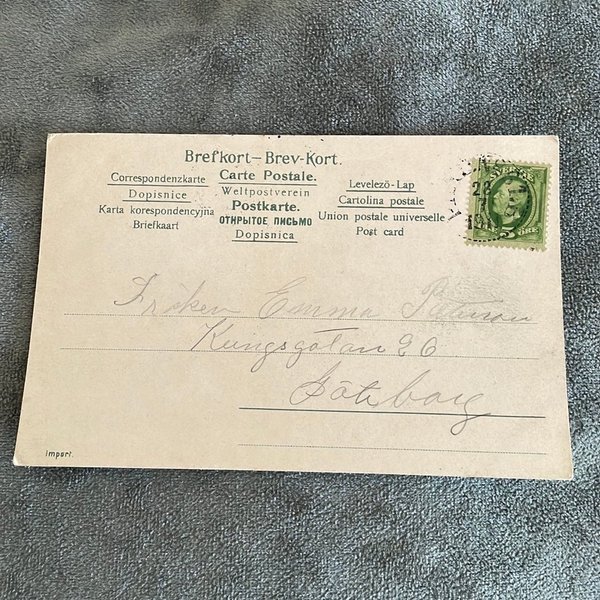 Brefkort – Brev-Kort.
Correspondenzkarte Carte Postale. Levelező-Lap
Dopisnice Weltpostverein Cartolina postale
Karta korespondencyjna Postkarte. Union postale universelle
Briefkaart ОТКРЫТОЕ ПИСЬМО Post card
Dopisnica
SVERIGE
28
5 ÖRE
Fröken Emma
Kungsgatan 26
Göteborg
Import.